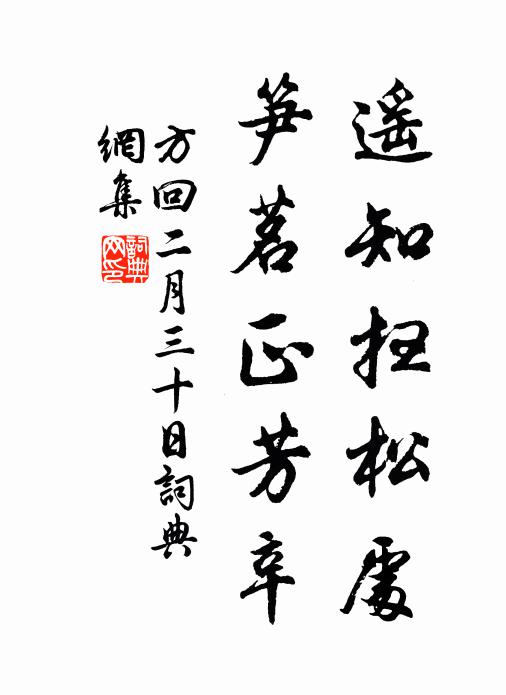 遥知扫松處
笋茗正芳辛
方回二月三十日詞典
網集
詞典网印